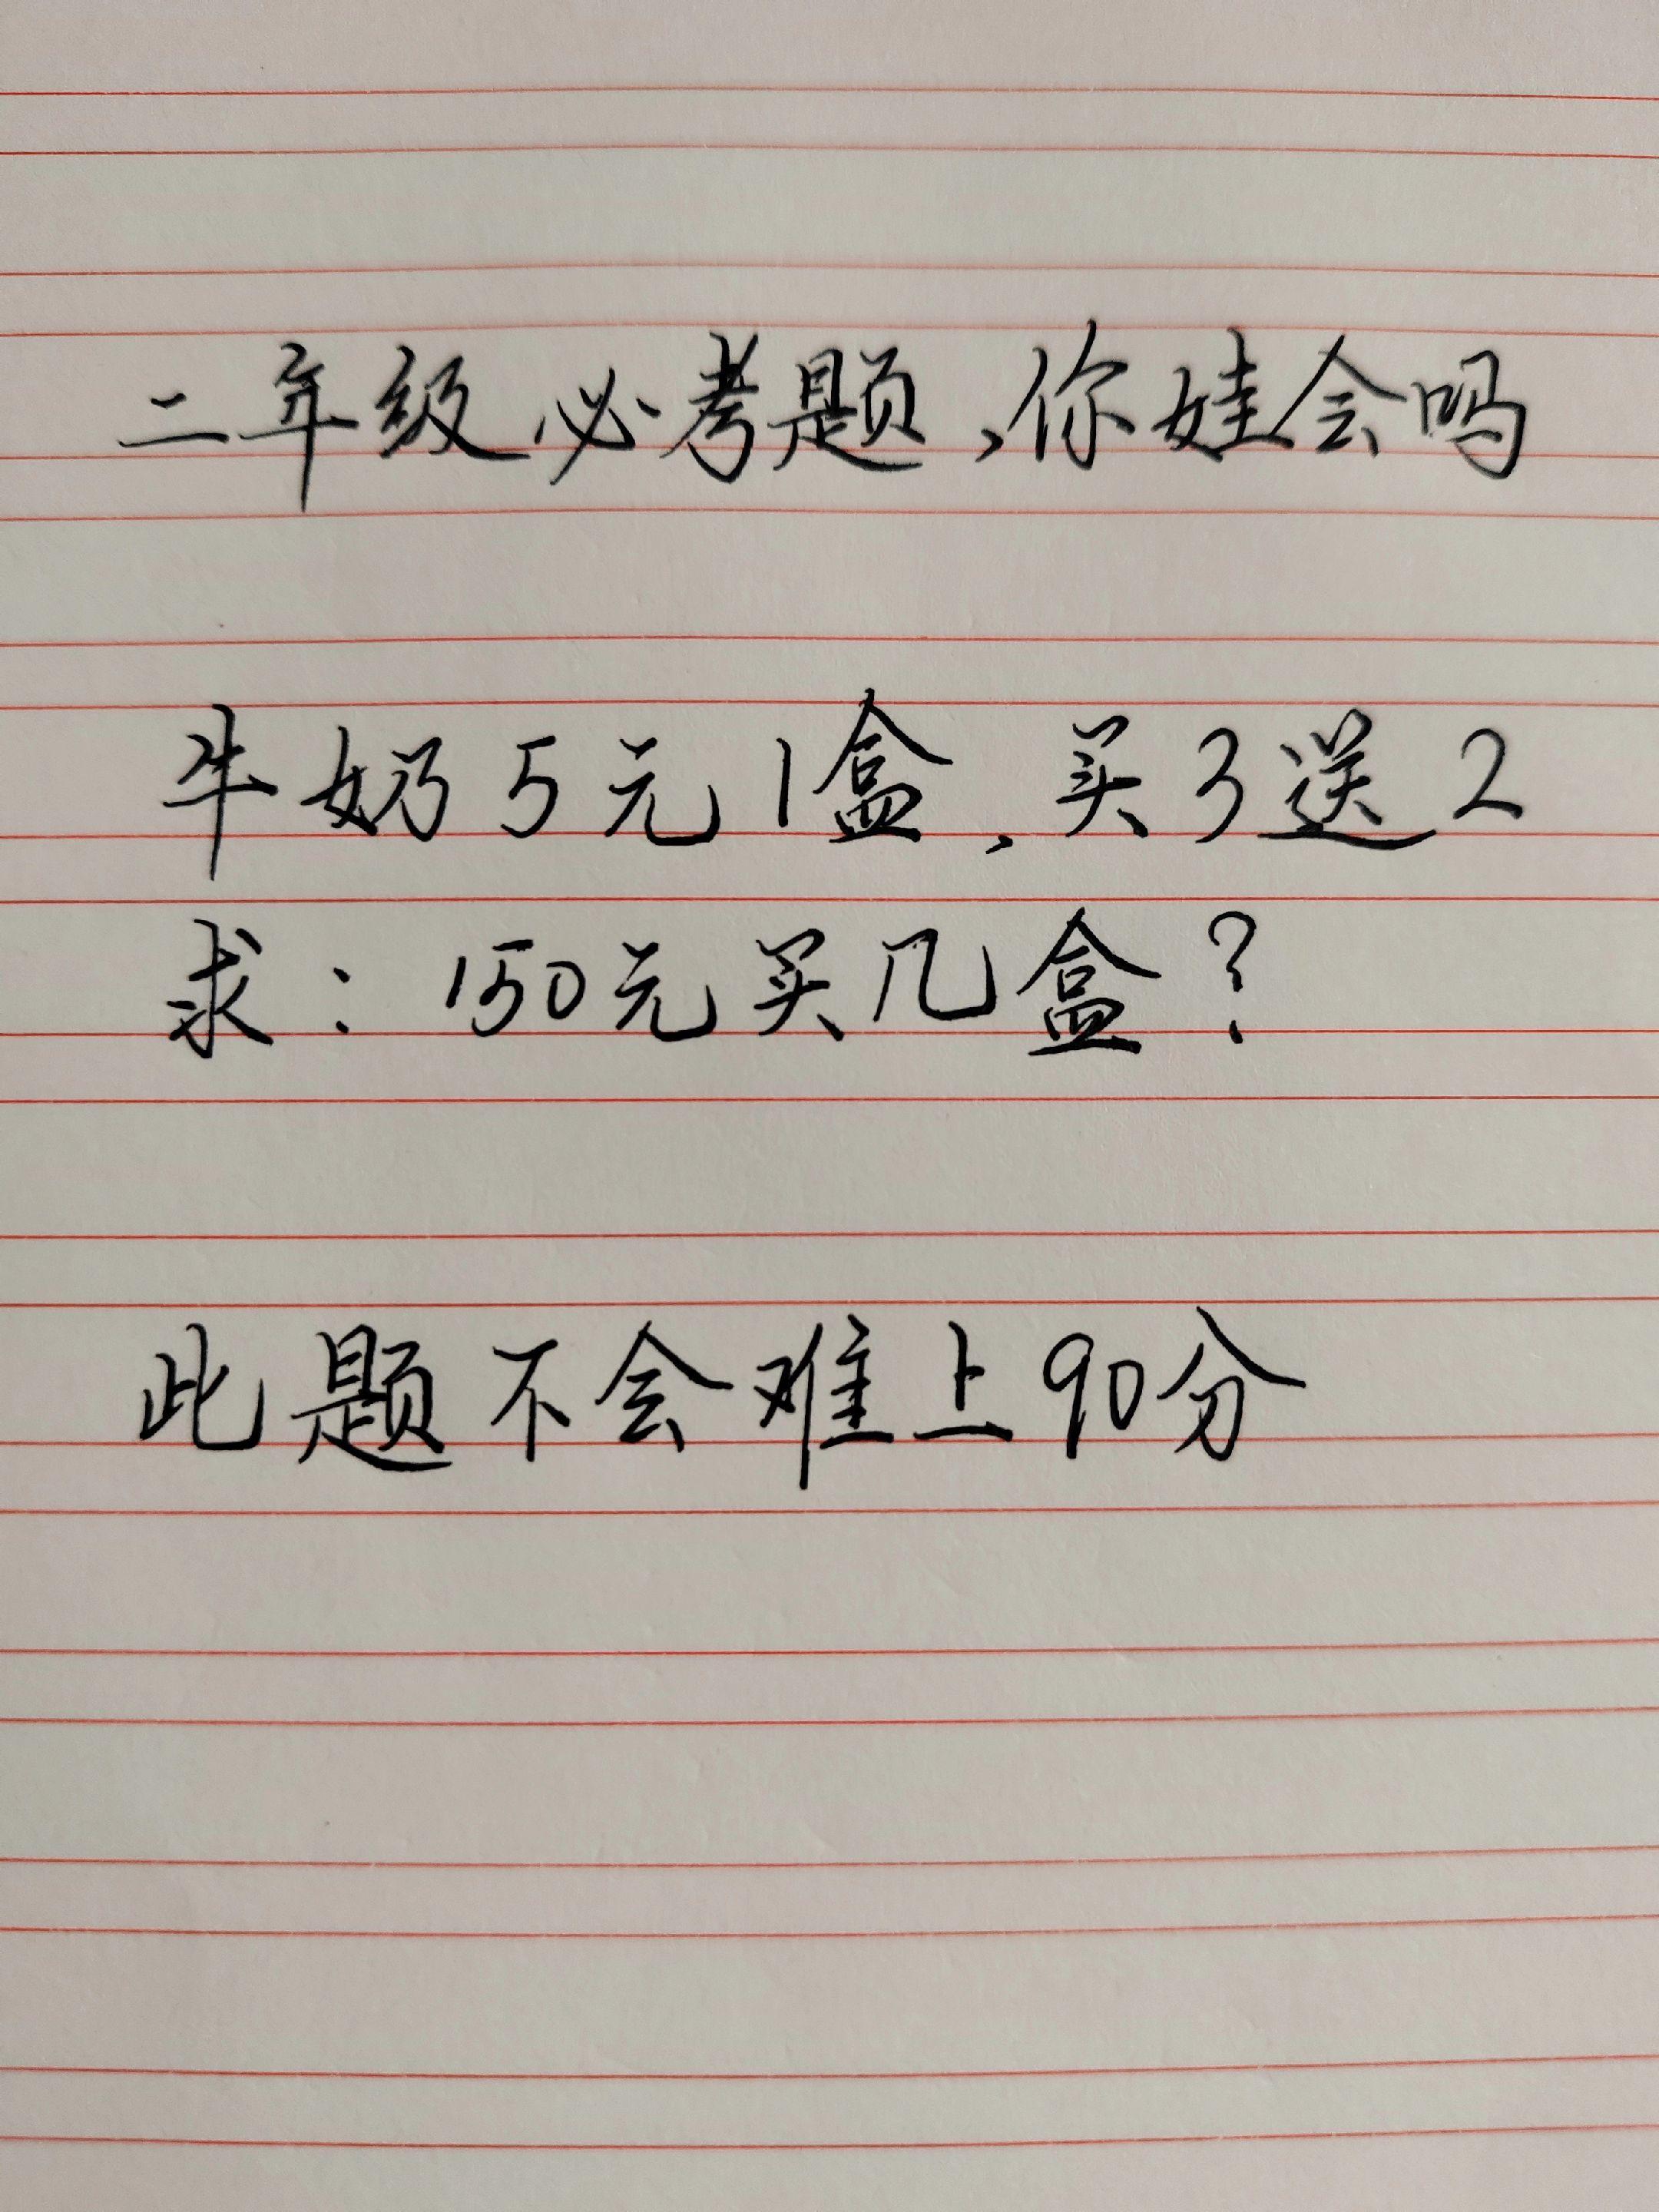 二年级必考题,你娃会吗
牛奶5元1盒,买3送2
求:150元买几盒?
此题不会难上90分